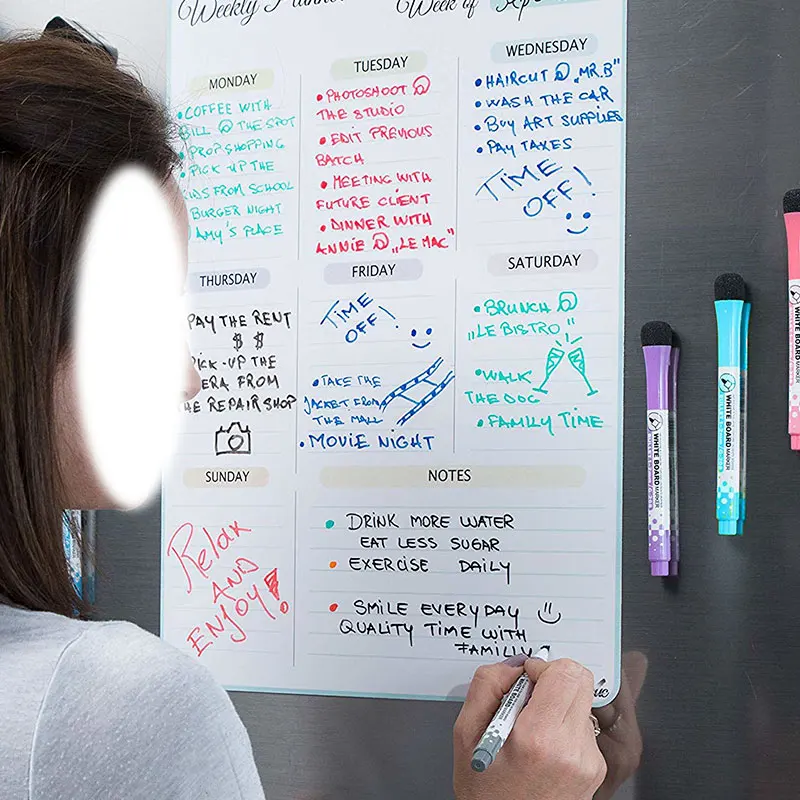 Weekly Planner
Week of
MONDAY
• COFFEE WITH
BILL @ THE SPOT
• PROP SHOPPING
• PICK UP THE
KIDS FROM SCHOOL
BURGER NIGHT
AMY'S PLACE
TUESDAY
• PHOTOSHOOT @
THE STUDIO
• EDIT PREVIOUS
BATCH
• MEETING WITH
FUTURE CLIENT
• DINNER WITH
ANNIE @ „LE MAC"
WEDNESDAY
• HAIRCUT @ „MR.B"
• WASH THE CAR
• BUY ART SUPPLIES
• PAY TAXES
TIME
OFF!
THURSDAY
PAY THE RENT
$ $
PICK-UP THE
ERA FROM
HE REPAIR SHOP
FRIDAY
TIME
OFF!
• TAKE THE
JACKET FROM
THE MALL
• MOVIE NIGHT
SATURDAY
• BRUNCH @
„LE BISTRO"
• WALK
THE DOG
• FAMILY TIME
SUNDAY
Relax
AND
ENJOY!
NOTES
• DRINK MORE WATER
EAT LESS SUGAR
• EXERCISE DAILY
• SMILE EVERYDAY
QUALITY TIME WITH
FAMILLY
WHITE BOARD MARKER
WHITE BOARD MARKER
WHITE BOARD MARKER